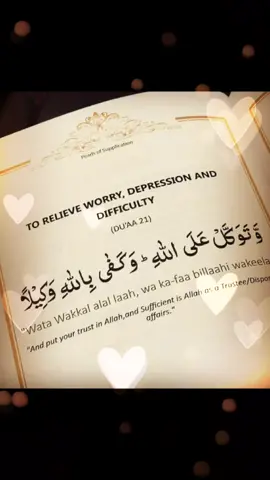 Pearls of Supplication
TO RELIEVE WORRY, DEPRESSION AND
DIFFICULTY
(DU'AA 21)
وَّ تَوَكَّلْ عَلَى اللّٰهِ ؕ وَ كَفٰى بِاللّٰهِ وَكِيْلًا
"Wata Wakkal alal laah, wa ka-faa billaahi wakeela
"And put your trust in Allah,and Sufficient is Allah as a Trustee/Dispos
affairs."